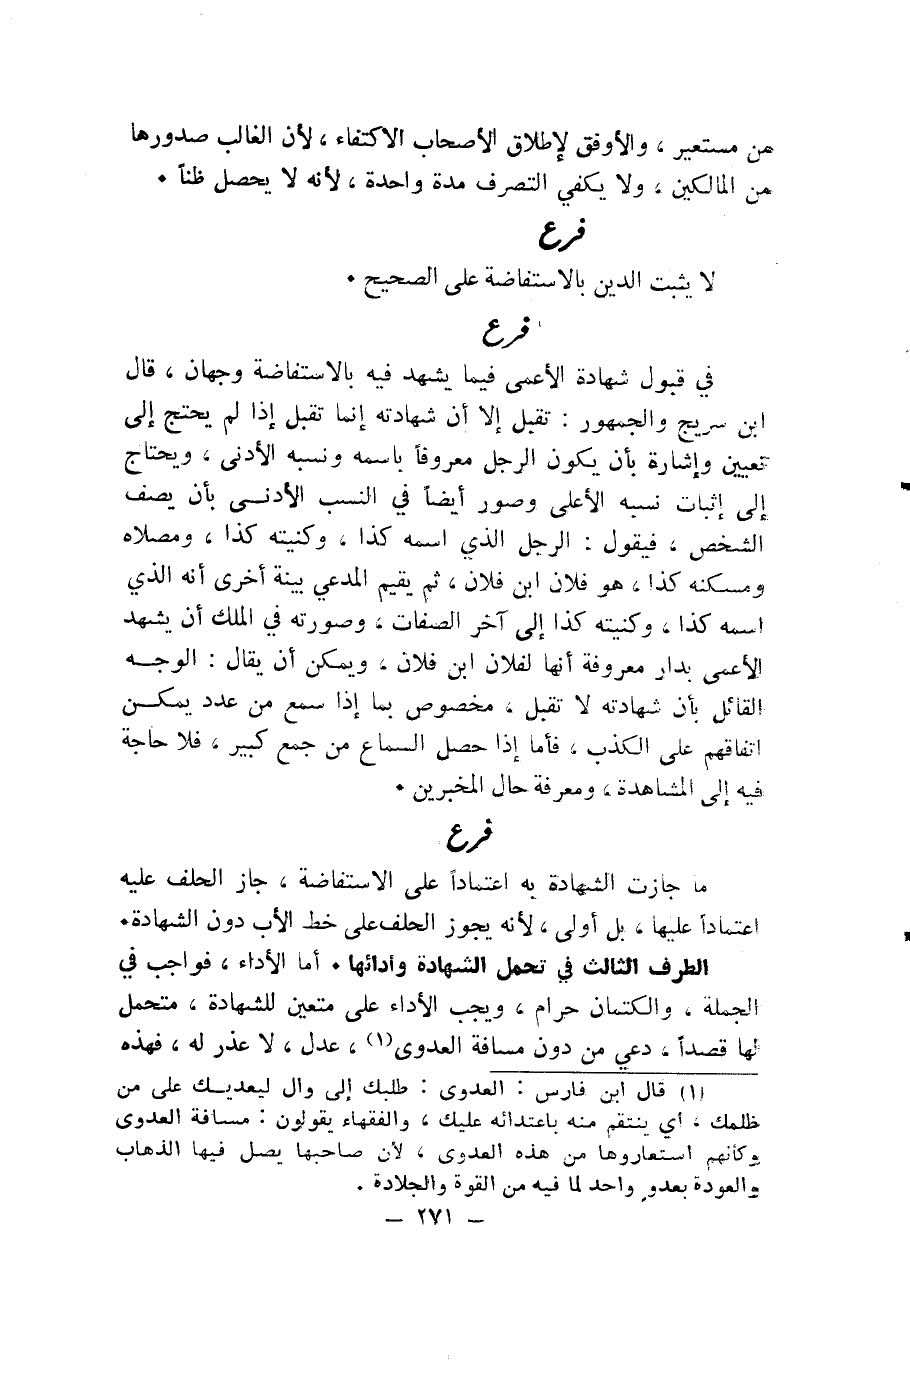 من مستعير ، والأوفق لإطلاق الأصحاب الاكتفاء ، لأن الغالب صدورها
من المالكين ، ولا يكفي التصرف مدة واحدة ، لأنه لا يحصل ظناً •
فرع
لا يثبت الدين بالاستفاضة على الصحيح •
فرع
في قبول شهادة الأعمى فيما يشهد فيه بالاستفاضة وجهان ، قال
ابن سريج والجمهور : تقبل إلا أن شهادته إنما تقبل إذا لم يحتج إلى
تعيين وإشارة بأن يكون الرجل معروفاً باسمه ونسبه الأدنى ، ويحتاج
إلى إثبات نسبه الأعلى وصور أيضاً في النسب الأدنى بأن يصف
الشخص ، فيقول : الرجل الذي اسمه كذا ، وكنيته كذا ، ومصلاه
ومسكنه كذا ، هو فلان ابن فلان ، ثم يقيم المدعي بينة أخرى أنه الذي
اسمه كذا ، وكنيته كذا إلى آخر الصفات ، وصورته في الملك أن يشهد
الأعمى بدار معروفة أنها لفلان ابن فلان ، ويمكن أن يقال : الوجه
القائل بأن شهادته لا تقبل ، مخصوص بما إذا سمع من عدد يمكن
اتفاقهم على الكذب ، فأما إذا حصل السماع من جمع كبير ، فلا حاجة
فيه إلى المشاهدة ، ومعرفة حال المخبرين •
فرع
ما جازت الشهادة به اعتماداً على الاستفاضة ، جاز الحلف عليه
اعتماداً عليها ، بل أولى ، لأنه يجوز الحلف على خط الأب دون الشهادة•
الطرف الثالث في تحمل الشهادة وأدائها • أما الأداء ، فواجب في
الجملة ، والكتمان حرام ، ويجب الأداء على متعين للشهادة ، متحمل
لها قصداً ، دعي من دون مسافة العدوى(١) ، عدل ، لا عذر له ، فهذه
(١) قال ابن فارس : العدوى : طلبك إلى وال ليعديك على من
ظلمك ، أي ينتقم منه باعتدائه عليك ، والفقهاء يقولون : مسافة العدوى
وكأنهم استعاروها من هذه العدوى ، لأن صاحبها يصل فيها الذهاب
والعودة بعدوٍ واحد لما فيه من القوة والجلادة .
— ٢٧١ —